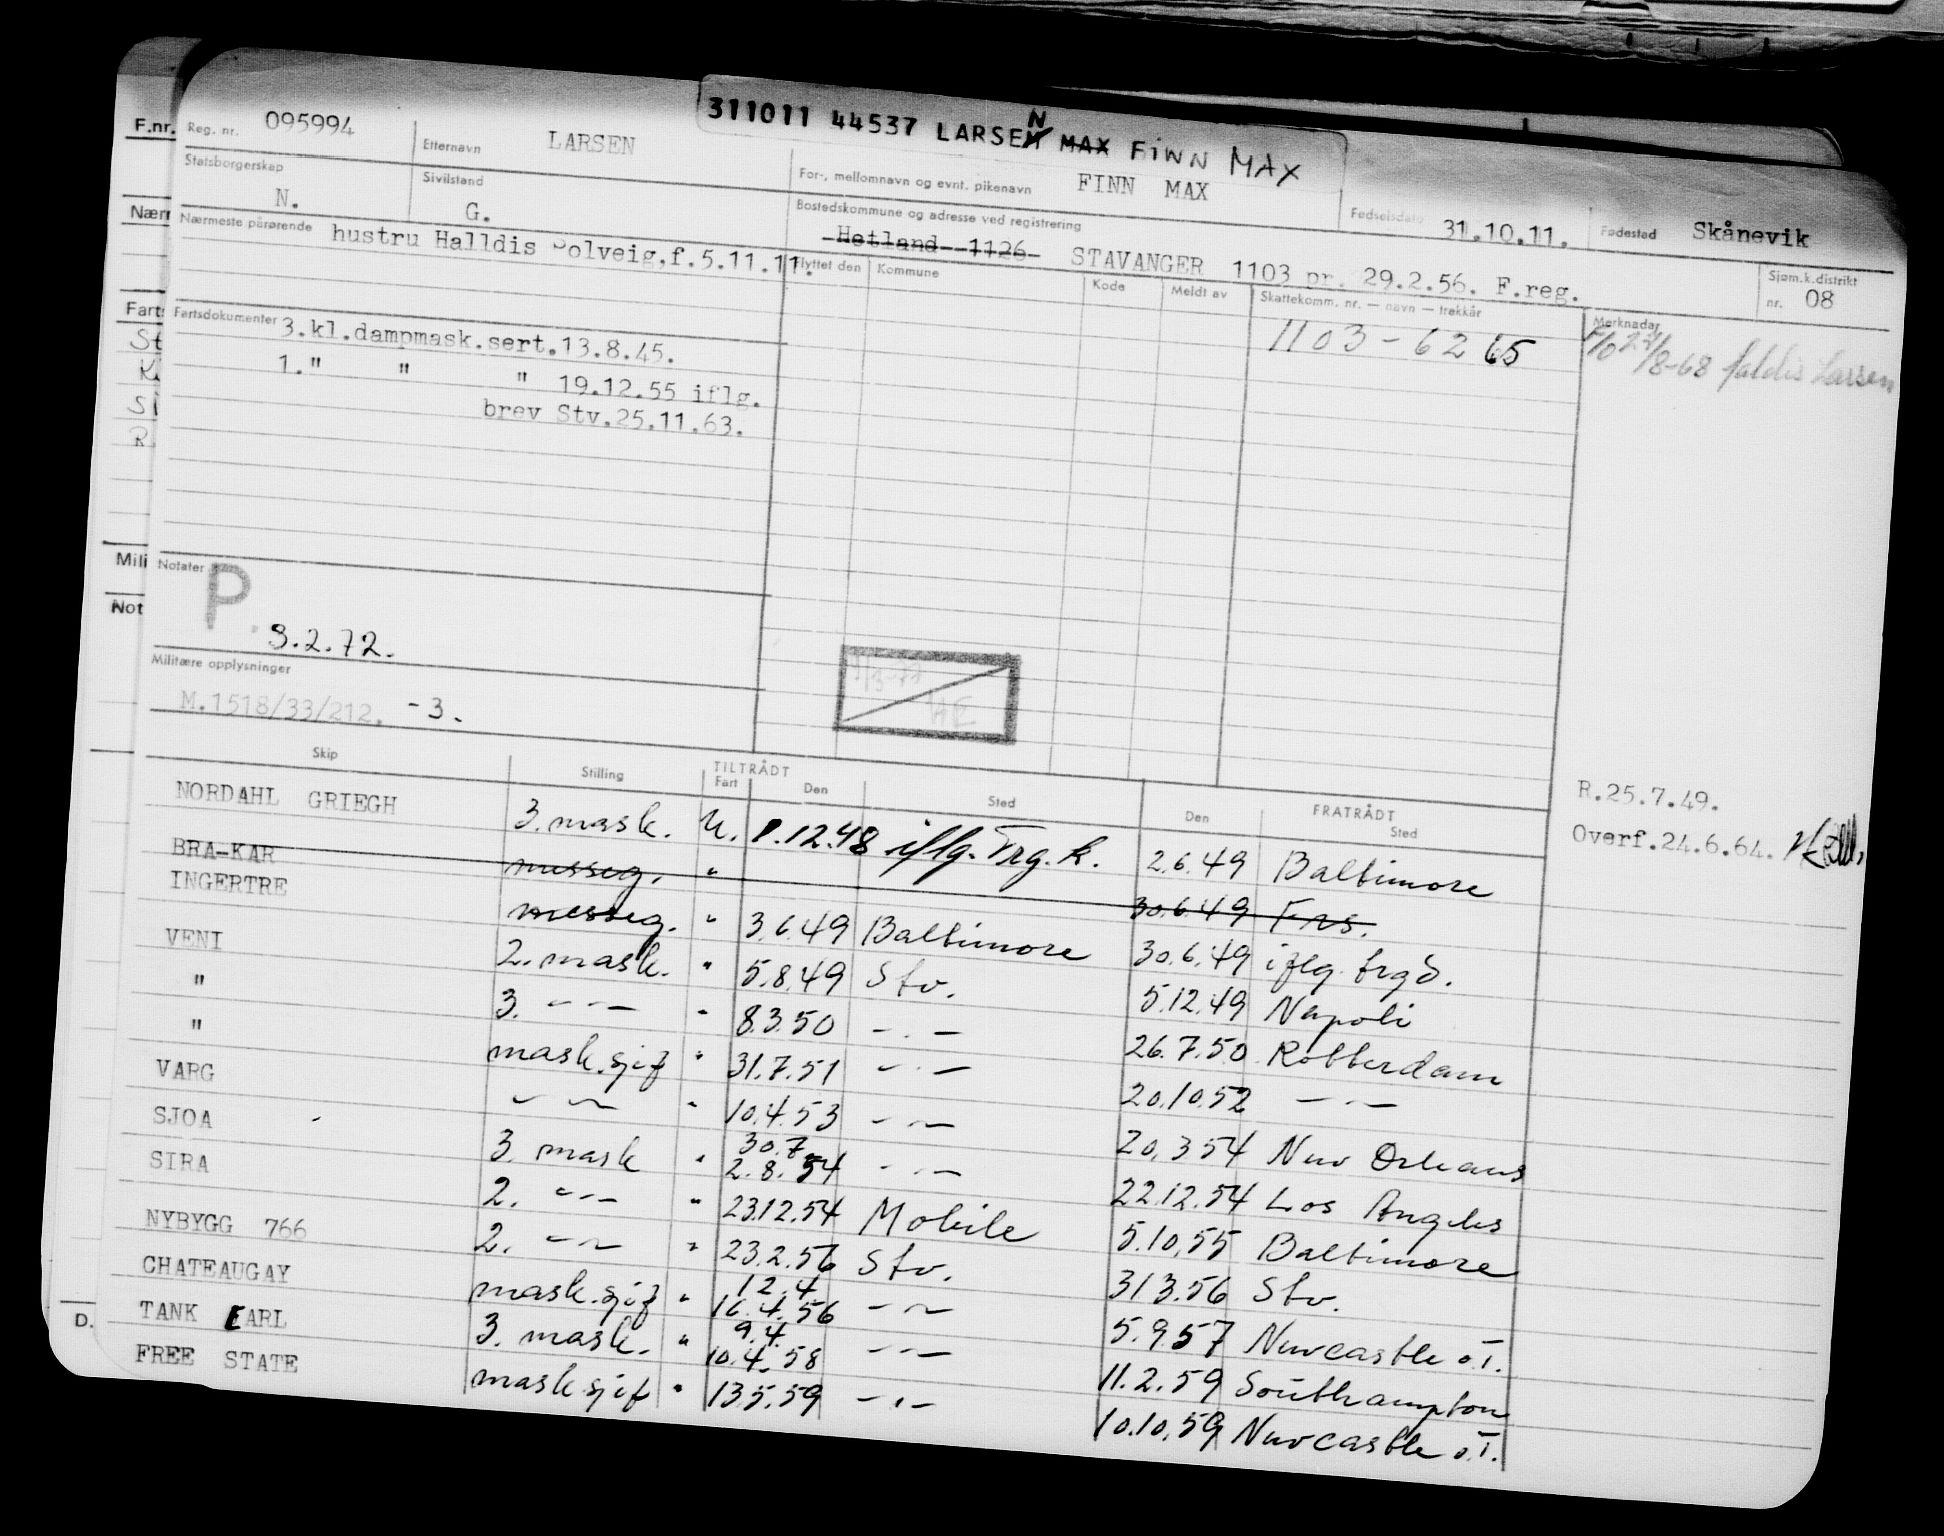 311011 44537 LARSEN MAX FINN MAX
F.nr. Reg. nr. 095994 Etternavn LARSEN For-, mellomnavn og evnt. pikenavn FINN MAX Fødselsdato 31.10.11. Fødested Skånevik
Statsborgerskap N. Sivilstand G. Bostedskommune og adresse ved registrering Hetland 1126 STAVANGER 1103 pr. 29.2.56. F.reg. Sjøm.k.distrikt nr. 08
Nærmeste pårørende hustru Halldis Solveig,f.5.11.11. Flyttet den Kommune Kode Meldt av Skattekomm. nr. — navn — trekkår Merknader
1103 - 62 65
/8-68 Larsen
Fartsdokumenter 3.kl.dampmask.sert.13.8.45.
1." " " 19.12.55 iflg.
brev Stv.25.11.63.
Mili
Notater P.
Not
3.2.72.
Militære opplysninger
M.1518/33/212. -3.
R.25.7.49.
Overf.24.6.64.
Skip Stilling TILTRÅDT Fart Den Sted FRATRÅDT Den Sted
NORDAHL GRIEGH 3. mask. U. 1.12.48 iflg. Frg. k. 2.6.49 Baltimore
BRA-KAR messeg. " 30.6.49 Frs.
INGERTRE messeg. " 3.6.49 Baltimore 30.6.49 iflg. frgd.
VENI 2. mask. " 5.8.49 Stv. 5.12.49 Napoli
" 3. -"- " 8.3.50 -"- 26.7.50 Rotterdam
" mask.sjef " 31.7.51 -"- 20.10.52 -"-
VARG -"- " 10.4.53 -"- 20.3 54 New Orleans
SJOA 3. mask " 30.7. 2.8.54 -"- 22.12.54 Los Angeles
SIRA 2. -"- " 23.12.54 Mobile 5.10.55 Baltimore
NYBYGG 766 2. -"- " 23.2.56 Stv. 31 3.56 Stv.
CHATEAUGAY mask.sjef " 12.4 16.4.56 -"- 5.9.57 Newcastle o.T.
TANK EARL 3. mask. " 9.4. 10.4.58 -"- 11.2.59 Southampton
D. FREE STATE mask sjef " 13.5.59 -"- 10.10.59 Newcastle o.T.